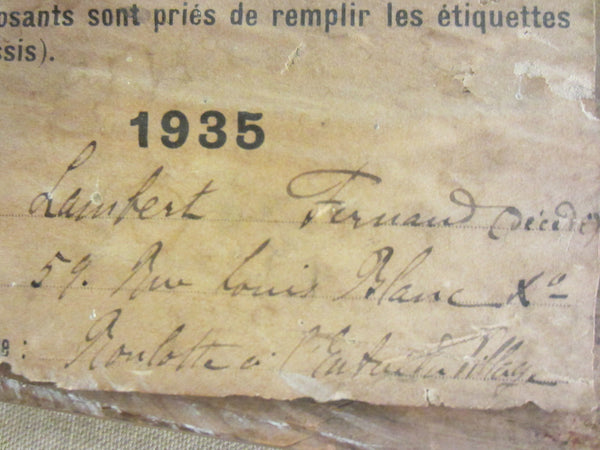 osants sont priés de remplir les étiquettes
ssis).
1935
Lambert Fernand (décédé)
59. Rue Louis Blanc Xe
e : Roulotte à l'Entrée du Village